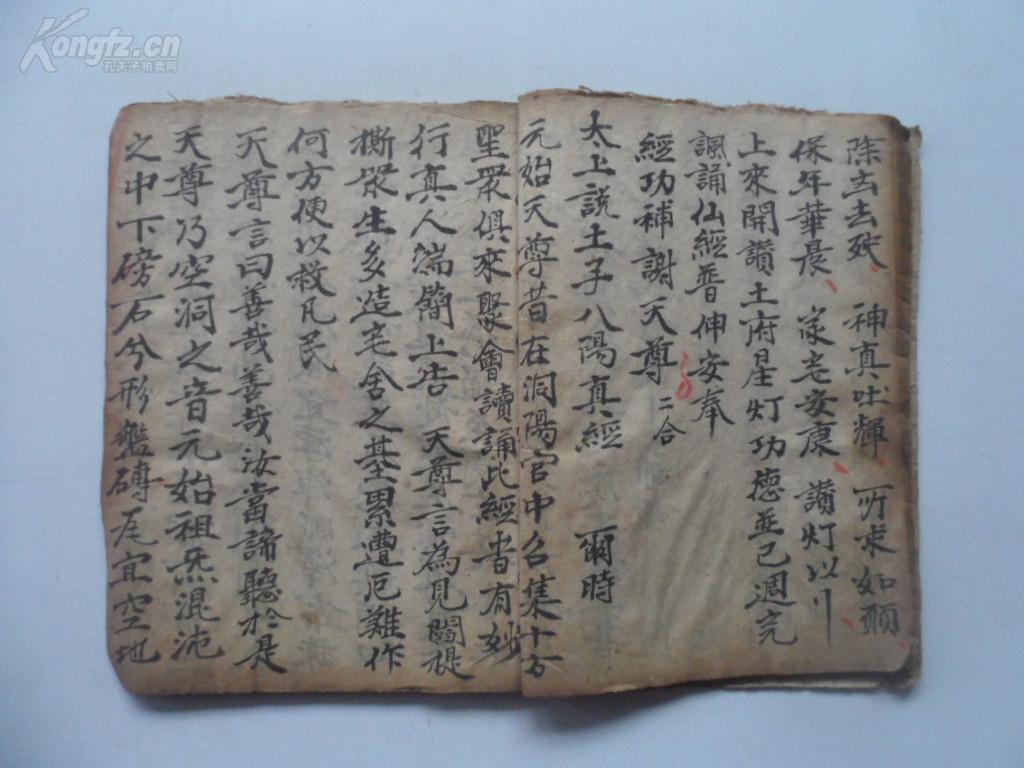 Kongfz.cn
孔夫子拍卖网
除去去殃 神真吐輝 所求如願
保年華晨 家老安康 讃灯以
上來開讃土府星灯功德並已週完
諷誦仙經普伸安奉
經功補謝天尊 二合
太上説土子八陽真經 爾時
元始天尊昔在洞陽宫中召集十方
聖眾俱來聚會讀誦此經者有妙
行真人端簡上告 天尊言為見閻
撕眾生多造宅舍之基累遭厄難作
何方便以救凡民
天尊言曰善哉善哉汝當諦聽於是
天尊乃空洞之音元始祖炁混沌
之中下磅石兮形盤磚 宜空地